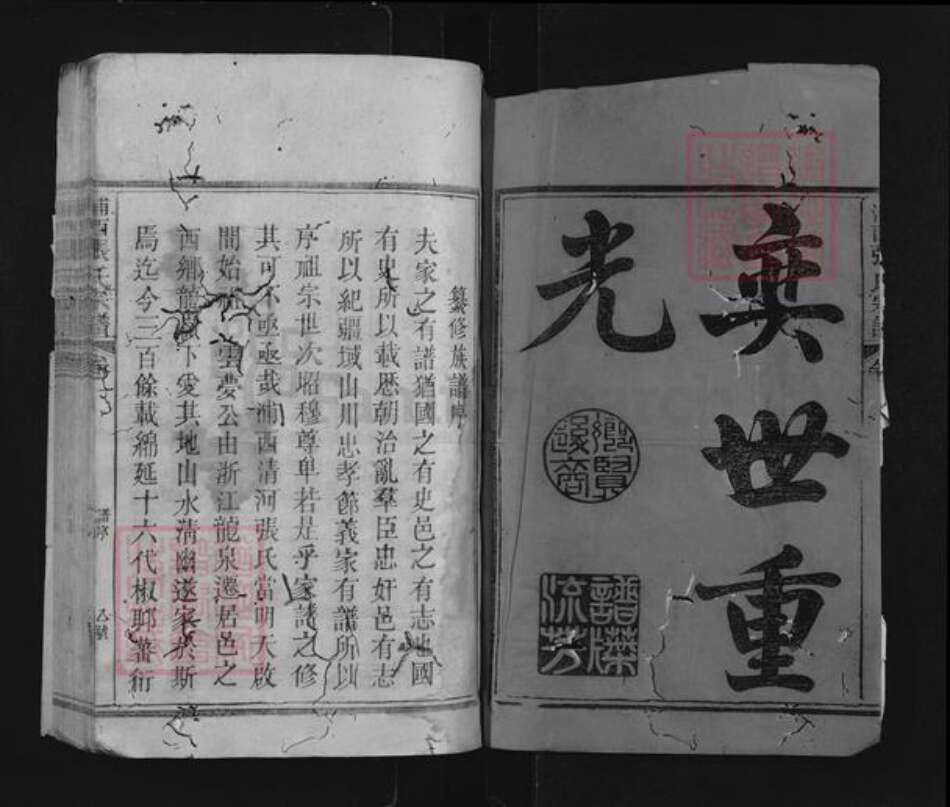 奕世重
光
譜牒
流芳
纂修族譜序
夫家之有譜猶國之有史邑之有志也國
有史所以載歷朝治亂羣臣忠奸邑有志
所以紀疆域山川忠孝節義家有譜所以
序祖宗世次昭穆尊卑若是乎家譜之修
其可不亟亟哉浦西清河張氏當明天啟
間始祖雲夢公由浙江龍泉遷居邑之
西鄉龍下愛其地山水清幽遂家於斯
焉迄今三百餘載綿延十六代椒耶蕃衍
浦西張氏宗譜
譜序
乙號